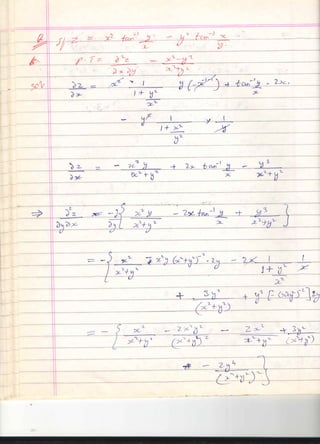 Q. If Z = x² tan⁻¹ y/x - y² tan⁻¹ x/y
P.T = ∂²z/∂x∂y = (x²-y²)/(x²+y²)
sol. ∂z/∂x = x² · 1/(1+y²/x²) · y(-x⁻¹⁻¹) + tan⁻¹ y/x · 2x.
- y² 1/(1+x²/y²) × 1/y
∂z/∂x = - x²y/(x²+y²) + 2x tan⁻¹ y/x - y³/(x²+y²)
⇒ ∂²z/∂y∂x = -∂/∂y { x²y/(x²+y²) - 2x tan⁻¹ y/x + y³/(x²+y²) }
= - { x²/(x²+y²) - x²y (x²+y²)⁻² · 2y - 2x 1/(1+y²/x²) 1/x
+ 3y²/(x²+y²) + y³ [-(x²+y²)⁻²] 2y
= - { x²/(x²+y²) - 2x²y²/(x²+y²)² - 2x²/(x²+y²) + 3y²/(x²+y²)
- 2y⁴/(x²+y²)² }